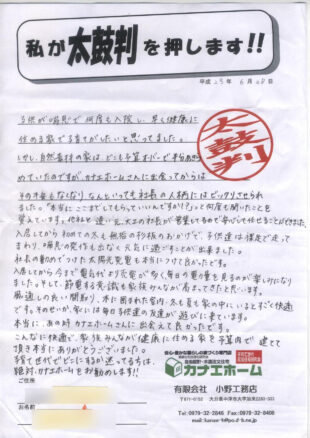 私が太鼓判を押します!!
平成25年6月 日
子供が喘息で何度も入院し、早く健康に
住める家で子育てがしたいと思ってました。
しかし、自然素材の家は、どこも予算オーバーで半分あきら
めていたのですが、カナエホームさんに出会ってからは
その不安もなくなり、なんといっても社長の人柄にはビックリさせられ
ました。「本当にここまでしてもらっていいんですか!?」と何度も聞いたことを
覚えています。他社と違い、元、大工の社長が営業してるので安心して任せることができました。
入居してから初めての冬も無垢の杉板のおかげで、子供達は裸足で走って
まわり、喘息の発作も出なく元気に過ごすことが出来ました。
社長の勧めでつけた太陽光発電も本当につけて良かったです。
入居してから今まで電気代より売電が多く毎日の電の量を見るのが楽しみになり
ました。そして、節電する意識も家族みんなが高まってきたと思います。
風通しの良い間取り、木に囲まれた室内、冬も夏も家の中にいるとすごく快適
です。そのせいか、家には毎日子供達の友達が遊びに来ています。
本当に、あの時カナエホームさんに出会えて良かったです。
こんなに快適で、家族みんなが健康に住める家を予算内で建てて
頂き本当にありがとうございました。
子育て世代でどこにするか迷ってる方は、
絶対、カナエホームをお勧めします!!
太鼓判
ご住所
お名前
カナエホーム
有限会社 小野工務店
〒871-0152 大分県中津市大字加来2280-331
Tel:0979-32-2846 Fax:0979-32-8408